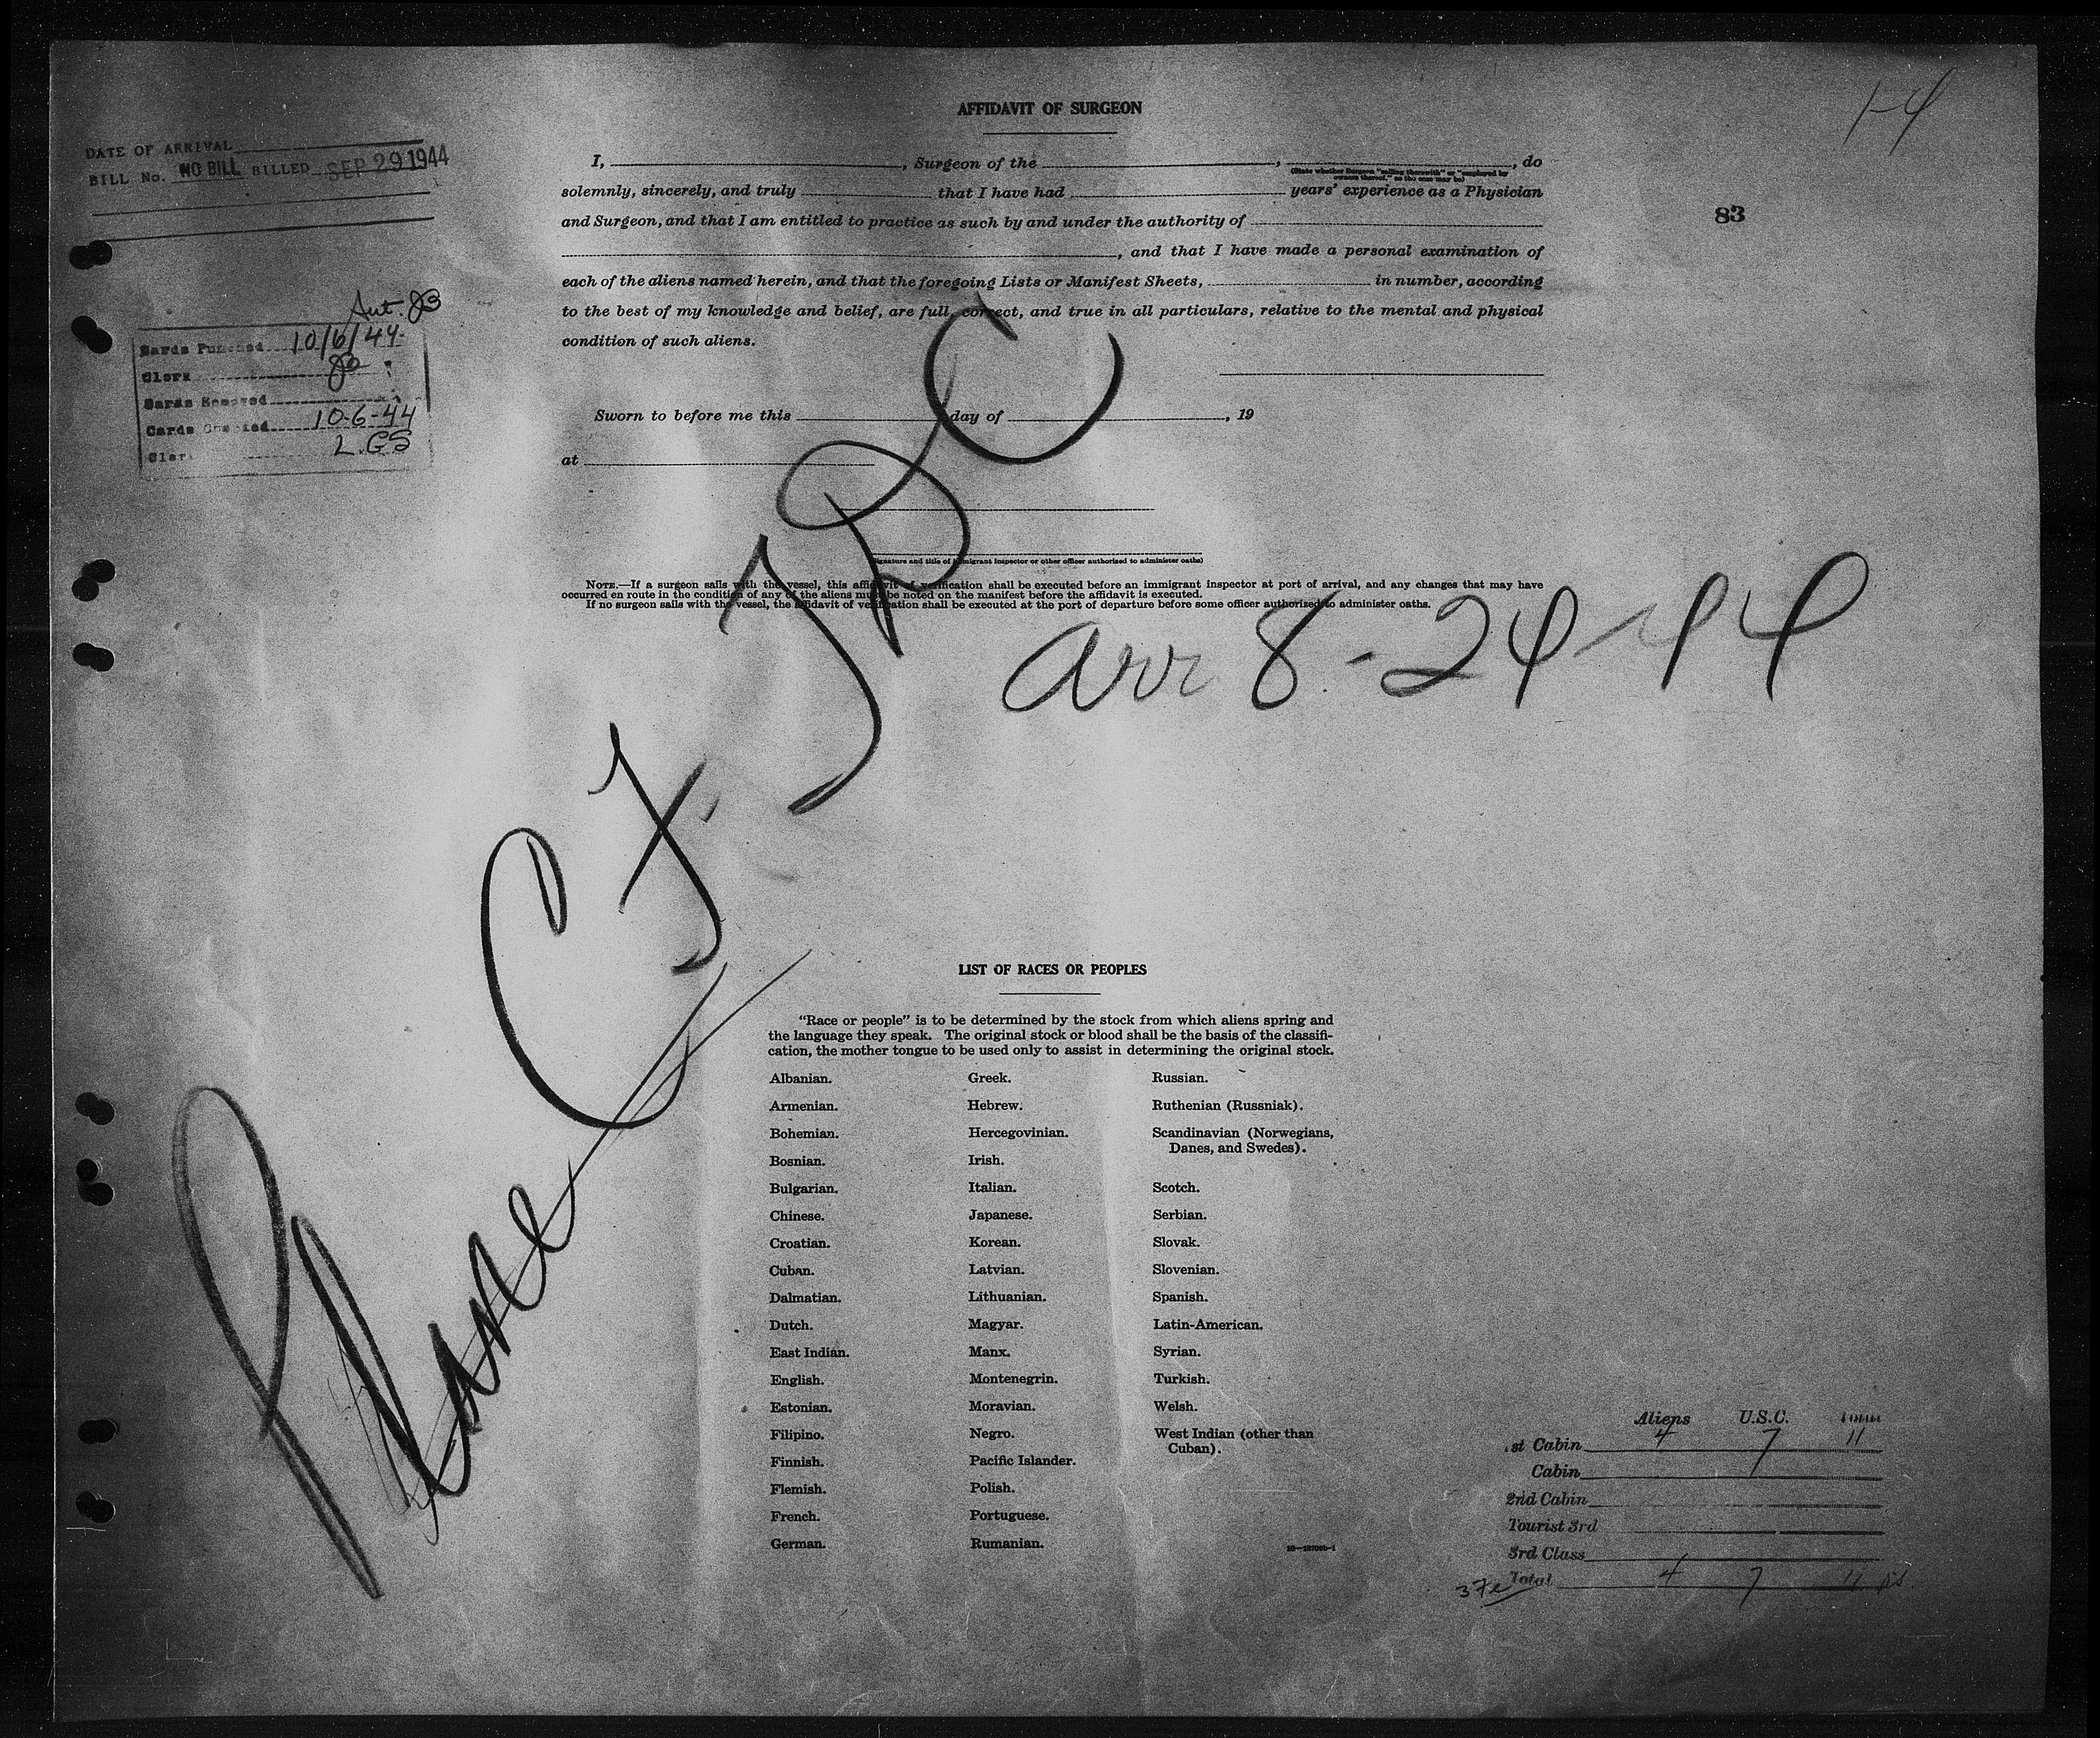 AFFIDAVIT OF SURGEON
1-4
DATE OF ARRIVAL
BILL No. NO BILL BILLED SEP 29 1944
83
I, , Surgeon of the , , do
(State whether Surgeon "sailing therewith" or "employed by
owners thereof," as the case may be)
solemnly, sincerely, and truly that I have had years' experience as a Physician
and Surgeon, and that I am entitled to practice as such by and under the authority of
, and that I have made a personal examination of
each of the aliens named herein, and that the foregoing Lists or Manifest Sheets, in number, according
to the best of my knowledge and belief, are full, correct, and true in all particulars, relative to the mental and physical
condition of such aliens.
Sworn to before me this day of , 19
at
(Signature and title of immigrant inspector or other officer authorized to administer oaths)
NOTE.—If a surgeon sails with the vessel, this affidavit of verification shall be executed before an immigrant inspector at port of arrival, and any changes that may have
occurred en route in the condition of any of the aliens must be noted on the manifest before the affidavit is executed.
If no surgeon sails with the vessel, the affidavit of verification shall be executed at the port of departure before some officer authorized to administer oaths.
Cards Punched 10/6/44
Clerk
Cards
Cards 10-6-44
Clerk L.GS
Plane
arr 8-24-44
LIST OF RACES OR PEOPLES
"Race or people" is to be determined by the stock from which aliens spring and
the language they speak. The original stock or blood shall be the basis of the classifi-
cation, the mother tongue to be used only to assist in determining the original stock.
Albanian.
Armenian.
Bohemian.
Bosnian.
Bulgarian.
Chinese.
Croatian.
Cuban.
Dalmatian.
Dutch.
East Indian.
English.
Estonian.
Filipino.
Finnish.
Flemish.
French.
German.
Greek.
Hebrew.
Hercegovinian.
Irish.
Italian.
Japanese.
Korean.
Latvian.
Lithuanian.
Magyar.
Manx.
Montenegrin.
Moravian.
Negro.
Pacific Islander.
Polish.
Portuguese.
Rumanian.
Russian.
Ruthenian (Russniak).
Scandinavian (Norwegians,
Danes, and Swedes).
Scotch.
Serbian.
Slovak.
Slovenian.
Spanish.
Latin-American.
Syrian.
Turkish.
Welsh.
West Indian (other than
Cuban).
Aliens U.S.C.
1st Cabin 4 7 11
Cabin
2nd Cabin
Tourist 3rd
3rd Class
Total 4 7 11